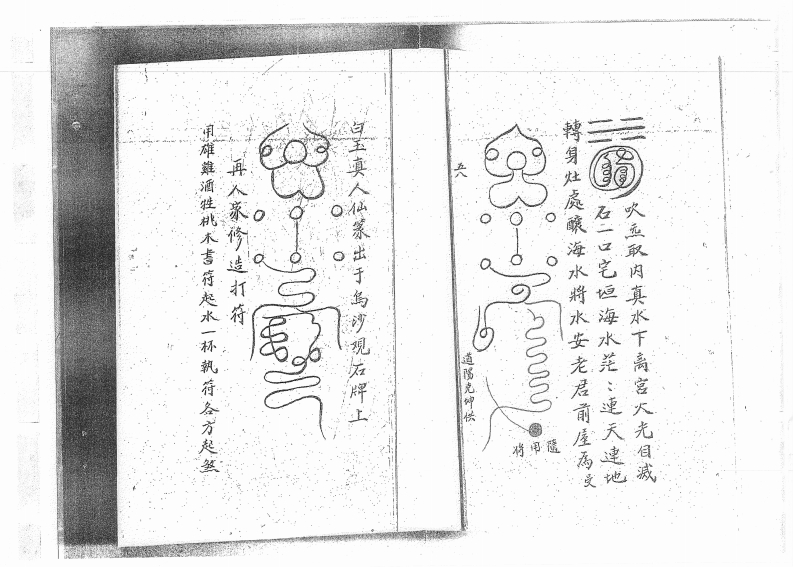 吹炁取內真水下离宮火光自滅
石二口宅垣海水茫:連天連地
轉身灶處釀海水將水安老君前屋為受
隨用將
五八
道陽克坤供
白玉真人仙篆出于烏沙观石牌上
再人家修造打符
用雄雞酒牲桃木書符起水一杯執符各方起煞